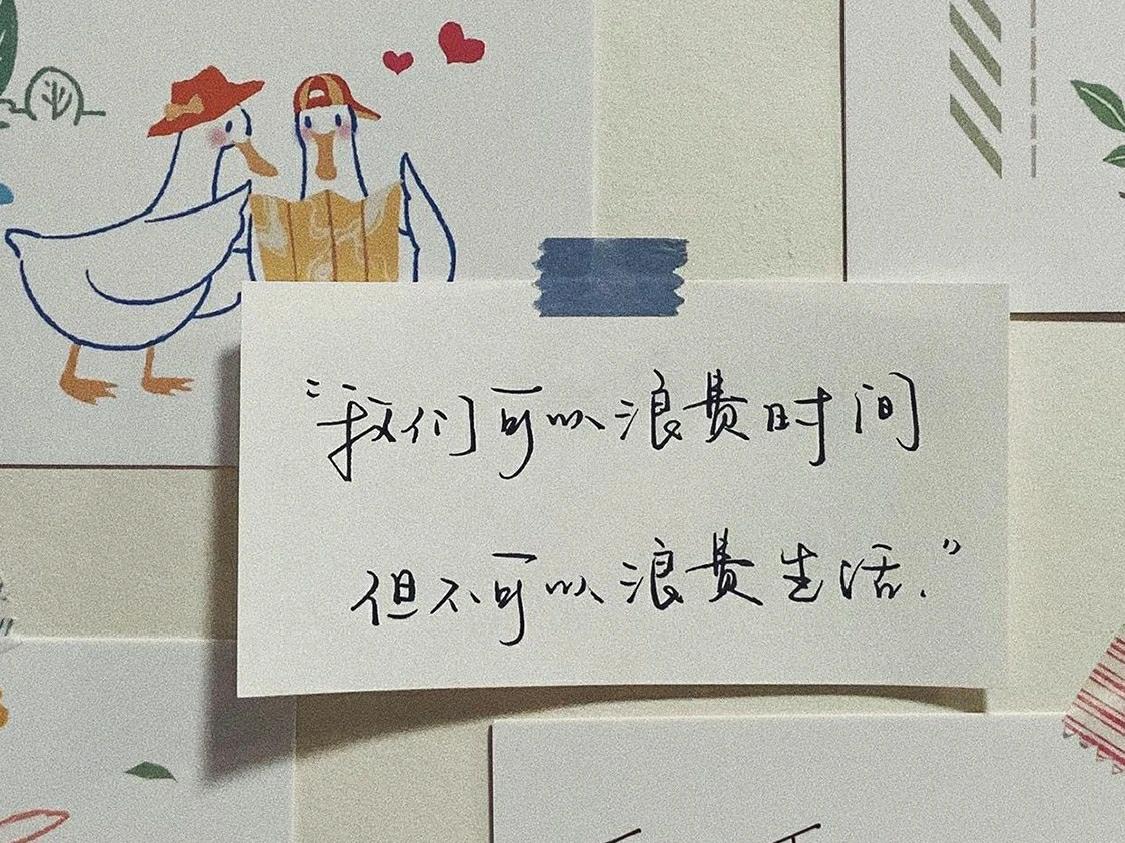 “我们可以浪费时间
但不可以浪费生活.”